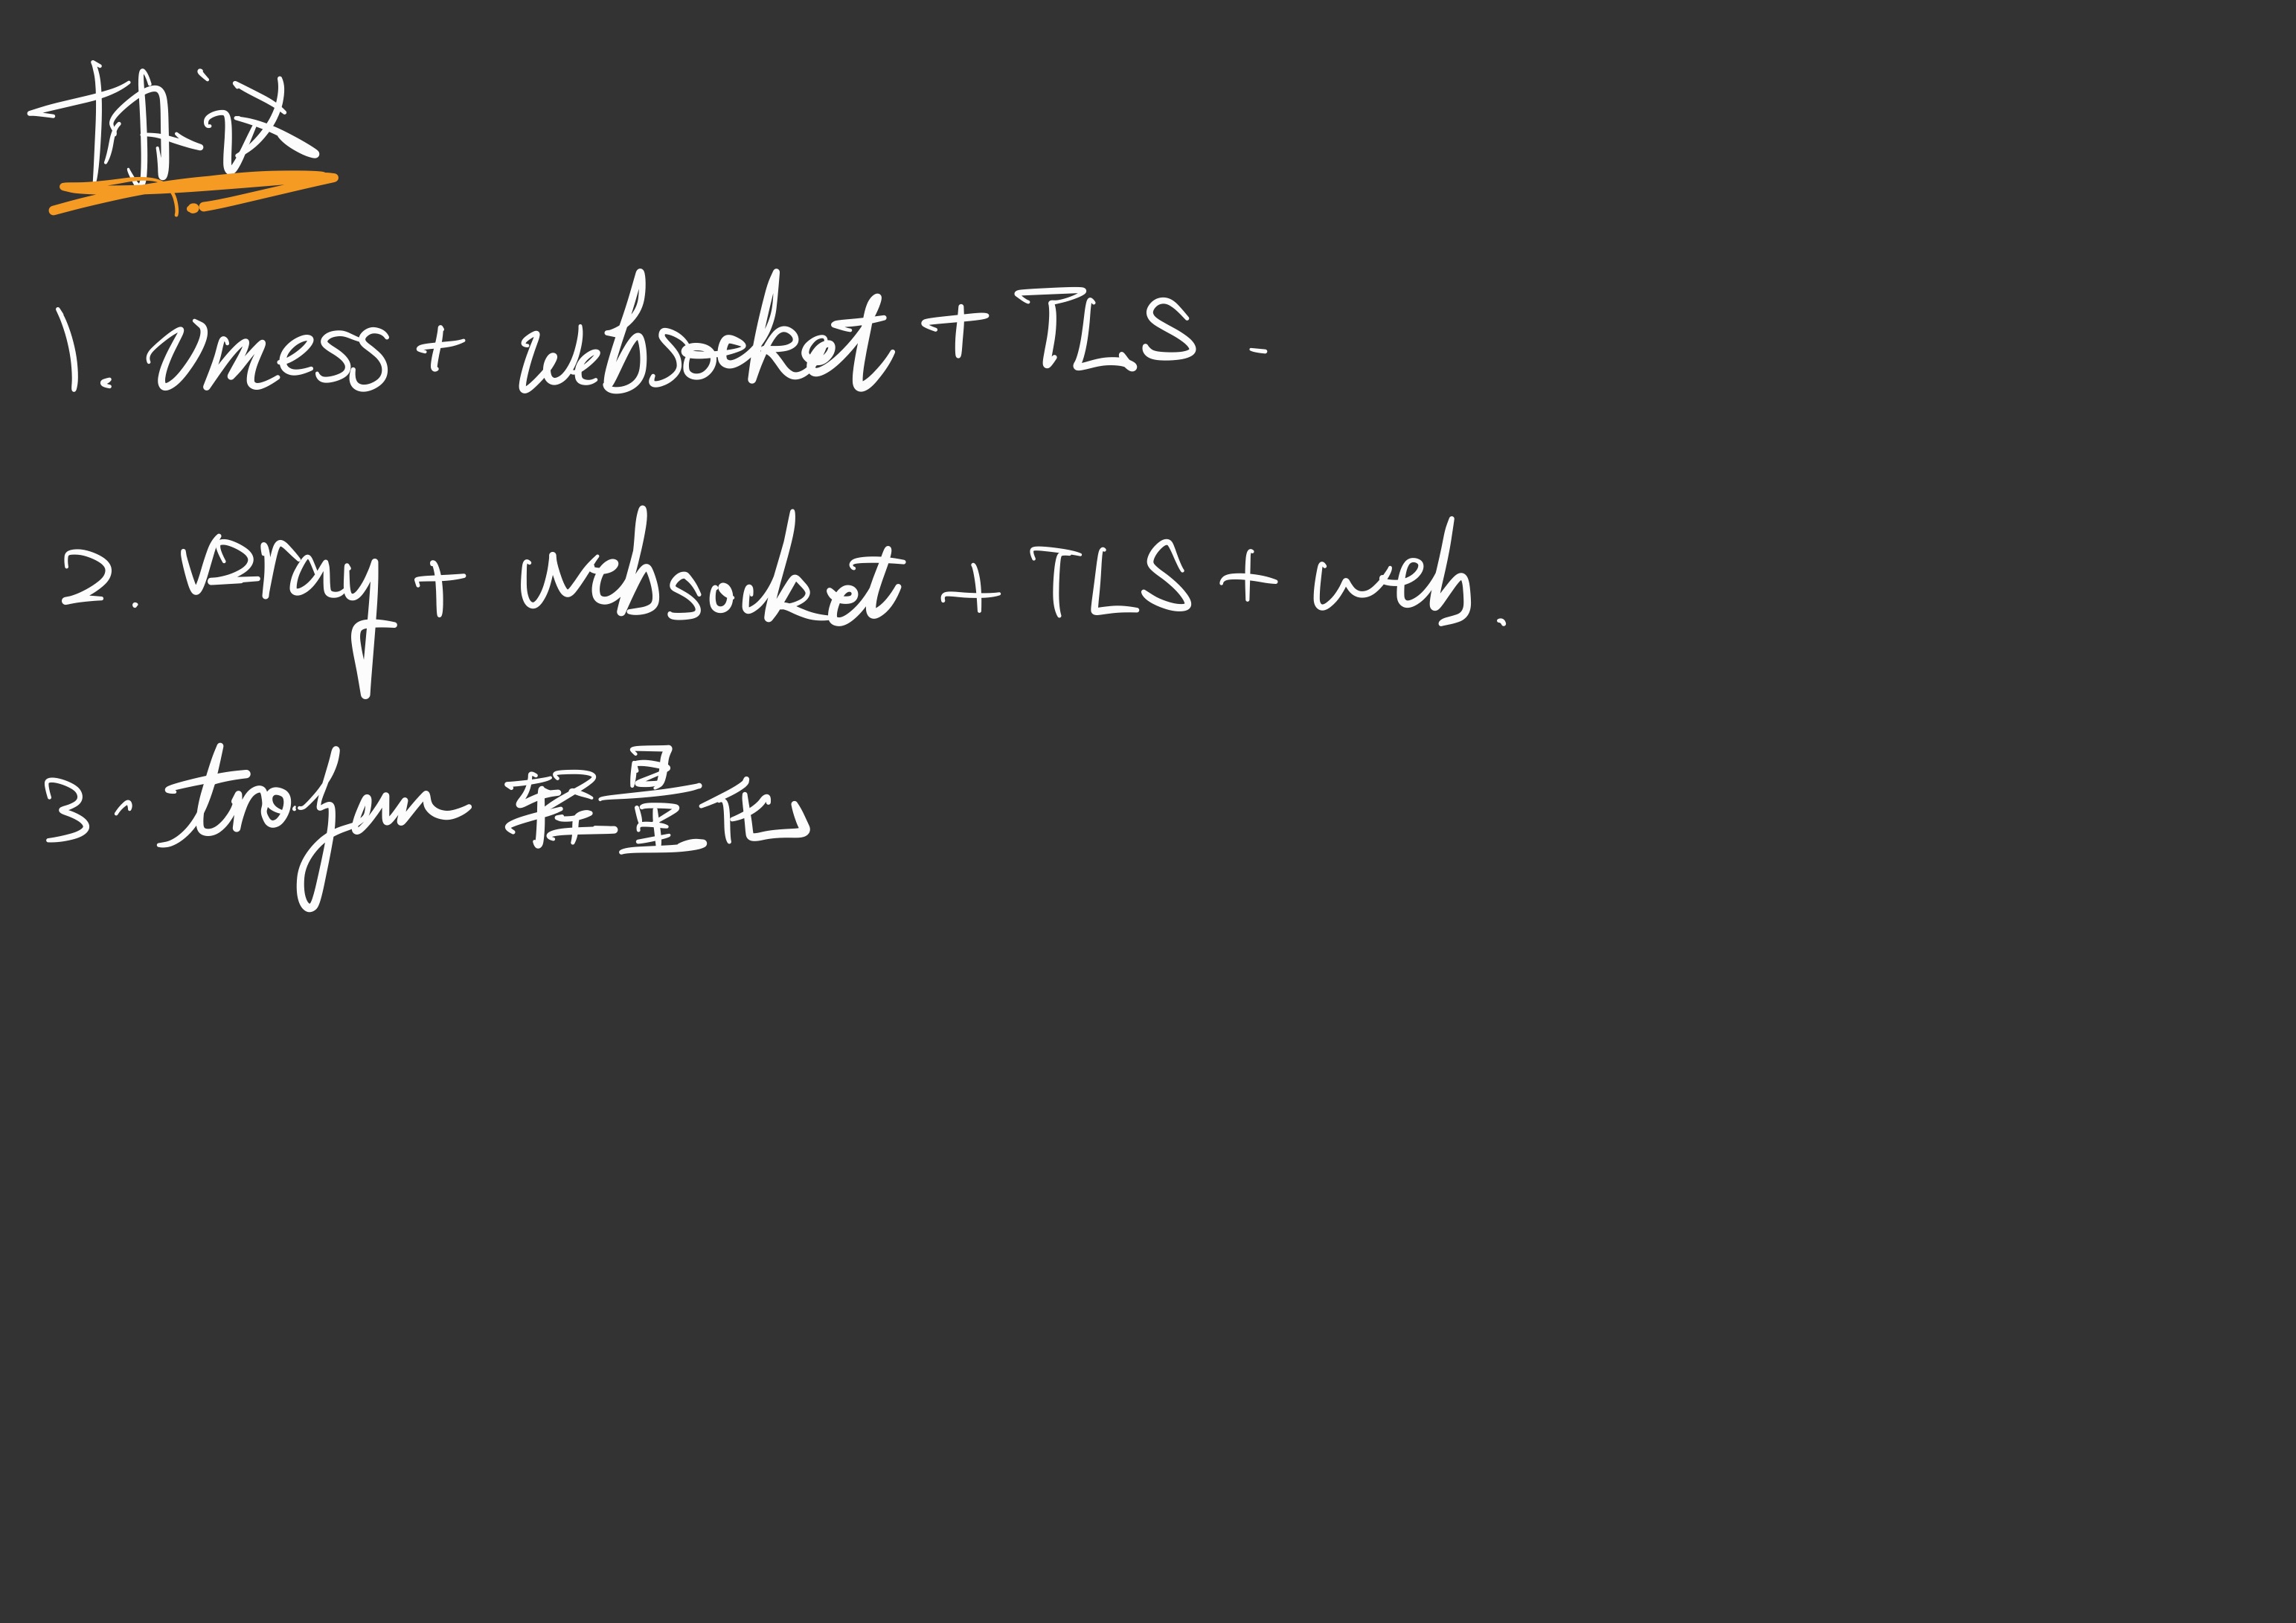 协议
1. vmess + websocket + TLS
2. V2ray + websocket + TLS + web.
3. trojan 轻量化